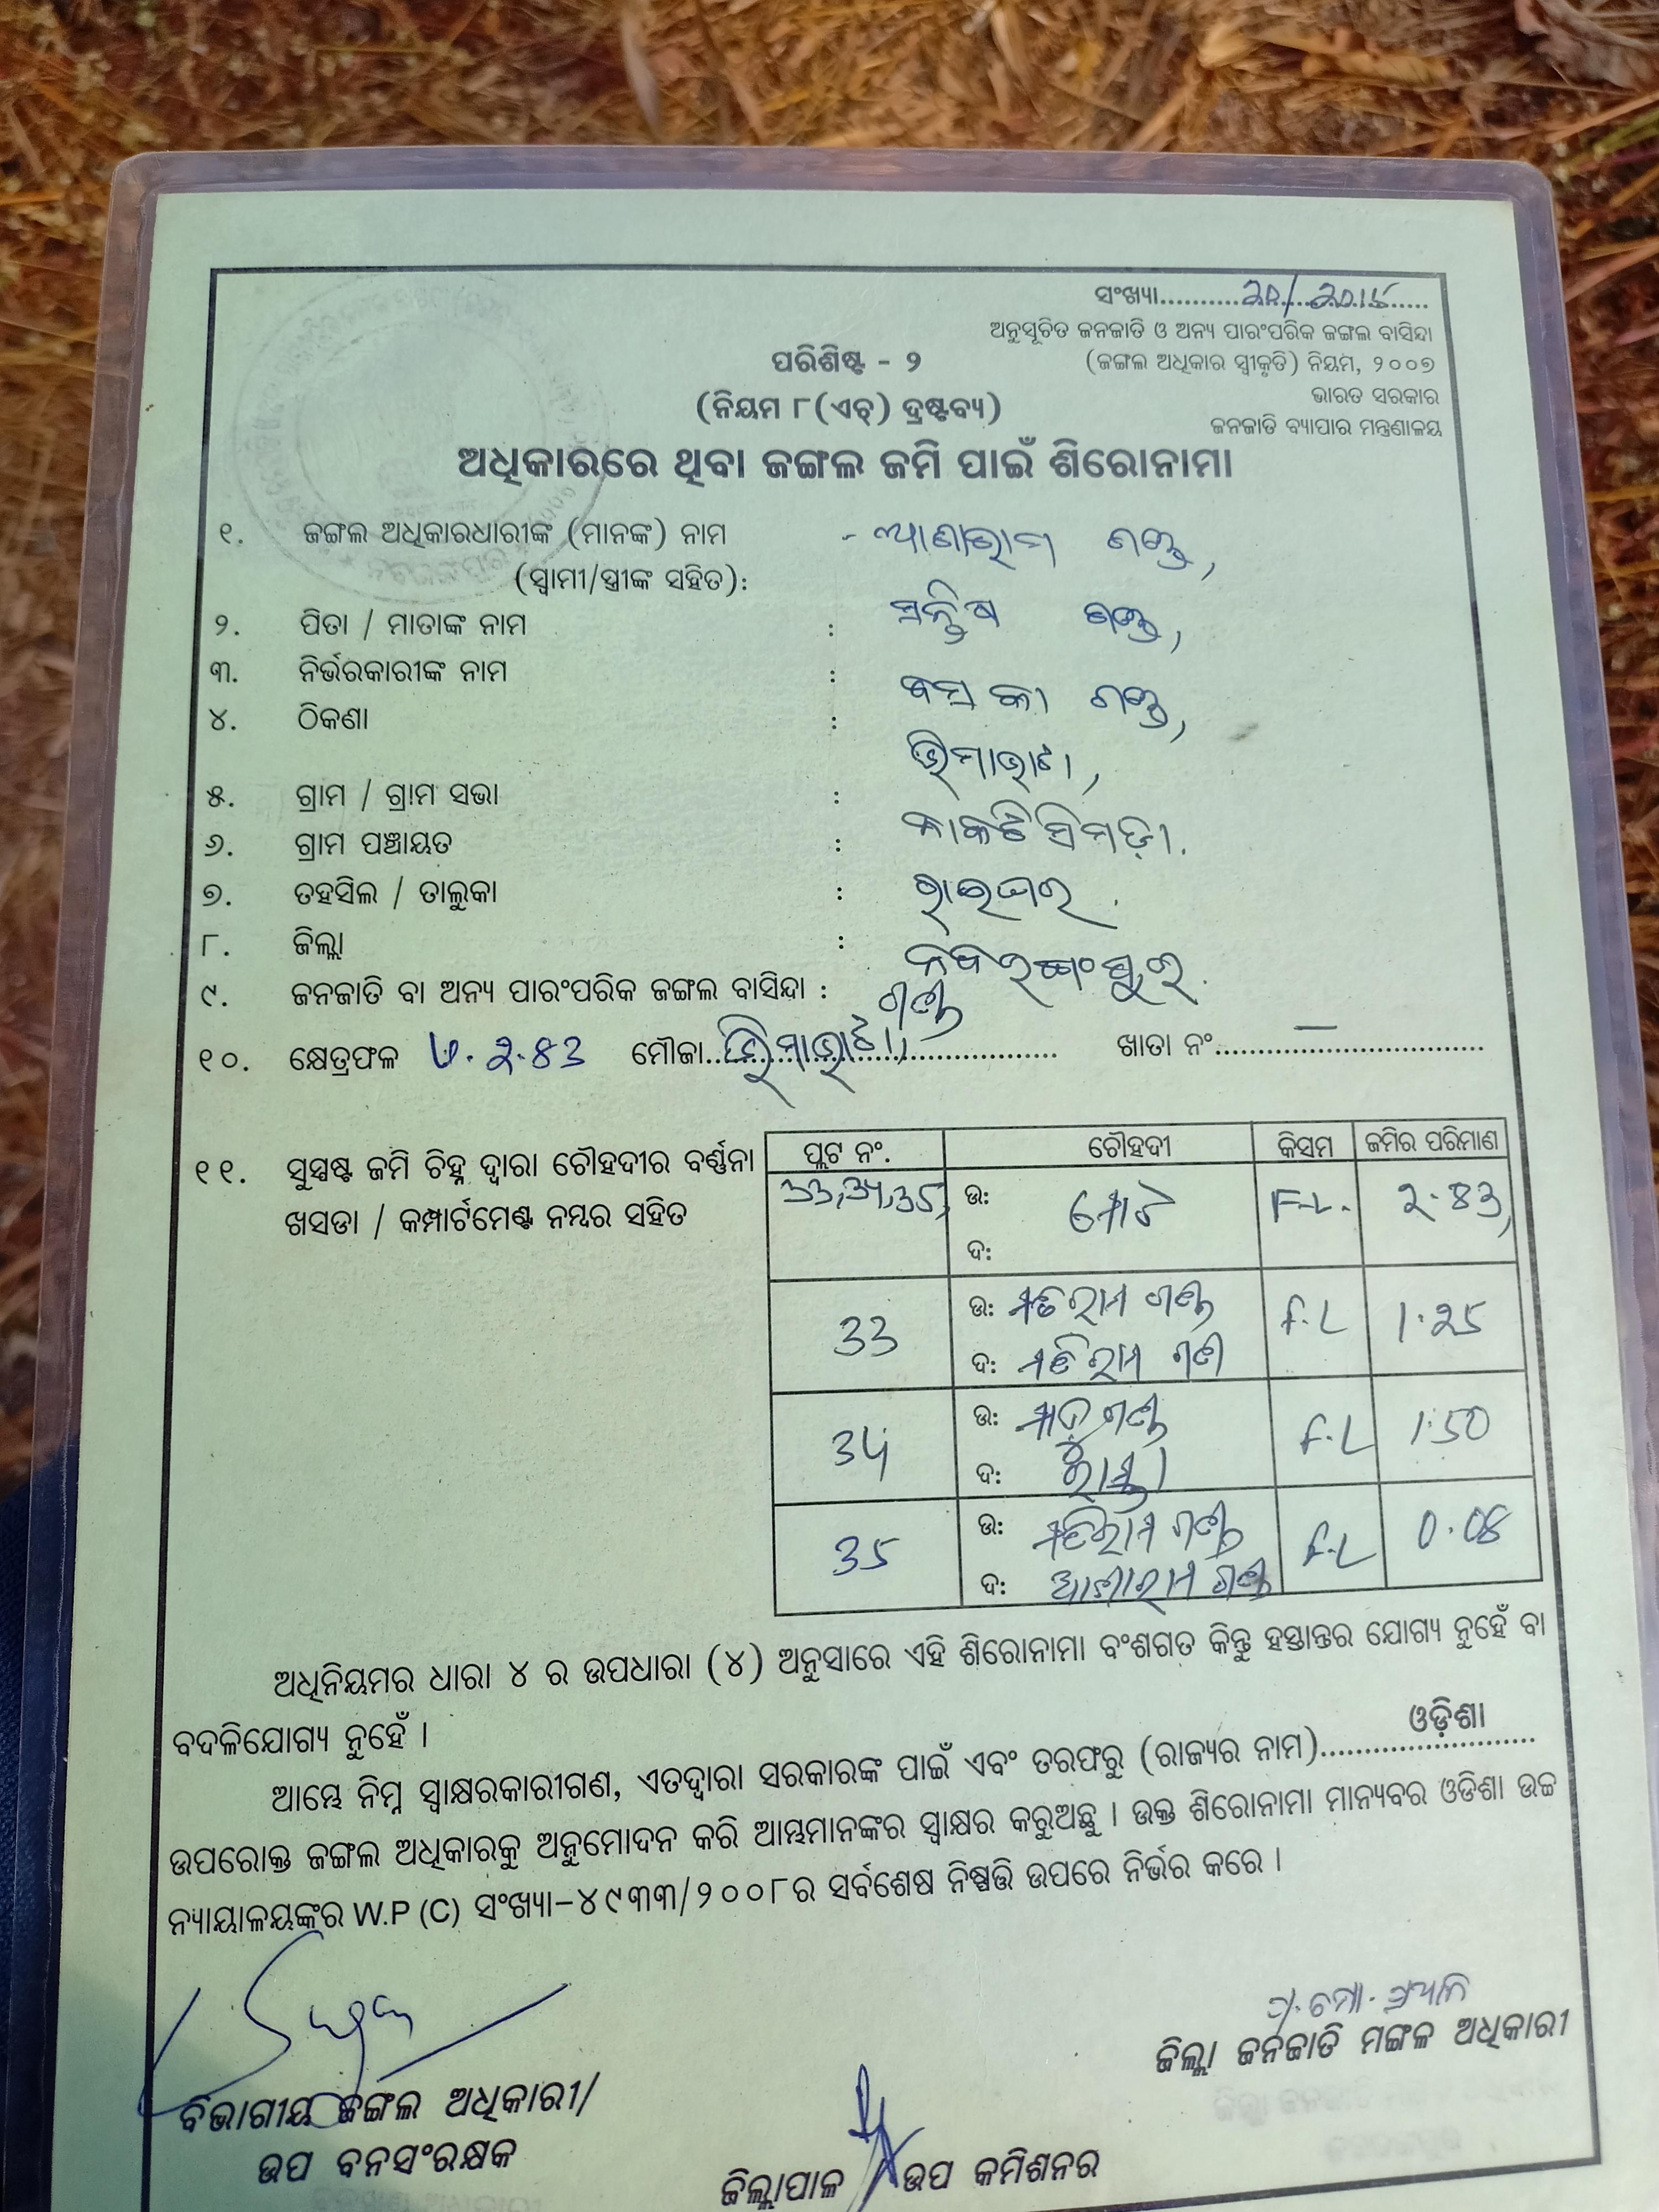 ସଂଖ୍ୟା
ଅନୁସୂଚିତ ଜନଜାତି ଓ ଅନ୍ୟ ପାରଂପରିକ ଜଙ୍ଗଲ ବାସିନ୍ଦା
(ଜଙ୍ଗଲ ଅଧିକାର ସ୍ୱୀକୃତି) ନିୟମ, ୨୦୦୭
ଭାରତ ସରକାର
ଜନଜାତି ବ୍ୟାପାର ମନ୍ତ୍ରଣାଳୟ
ପରିଶିଷ୍ଟ - ୨
(ନିୟମ ୮(ଏଚ୍) ଦ୍ରଷ୍ଟବ୍ୟ)
ଅଧିକାରରେ ଥିବା ଜଙ୍ଗଲ ଜମି ପାଇଁ ଶିରୋନାମା
୧. ଜଙ୍ଗଲ ଅଧିକାରଧାରୀଙ୍କ (ମାନଙ୍କ) ନାମ
(ସ୍ୱାମୀ/ସ୍ତ୍ରୀଙ୍କ ସହିତ):
୨. ପିତା / ମାତାଙ୍କ ନାମ : ଗଣ୍ଡ,
୩. ନିର୍ଭରକାରୀଙ୍କ ନାମ : ଗଣ୍ଡ,
୪. ଠିକଣା :
୫. ଗ୍ରାମ / ଗ୍ରାମ ସଭା :
୬. ଗ୍ରାମ ପଞ୍ଚାୟତ :
୭. ତହସିଲ / ତାଲୁକା : ରାଇଘର.
୮. ଜିଲ୍ଲା : ନବରଙ୍ଗପୁର.
୯. ଜନଜାତି ବା ଅନ୍ୟ ପାରଂପରିକ ଜଙ୍ଗଲ ବାସିନ୍ଦା : ଗଣ୍ଡ
୧୦. କ୍ଷେତ୍ରଫଳ ମୌଜା ଖାତା ନଂ. —
୧୧. ସୁସ୍ପଷ୍ଟ ଜମି ଚିହ୍ନ ଦ୍ୱାରା ଚୌହଦୀର ବର୍ଣ୍ଣନା
ଖସଡା / କମ୍ପାର୍ଟମେଣ୍ଟ ନମ୍ବର ସହିତ
ପ୍ଲଟ ନଂ. ଚୌହଦୀ କିସମ ଜମିର ପରିମାଣ
33,34,35, ଉ: ମୋଟ F.L. 2.83,
ଦ:
33 ଉ: ଗଣ୍ଡ F.L 1.25
ଦ: ଗଣ୍ଡ
34 ଉ: ଗଣ୍ଡ F.L 1.50
ଦ: ରାସ୍ତା
35 ଉ: ଗଣ୍ଡ F.L 0.08
ଦ: ଗଣ୍ଡ
ଅଧିନିୟମର ଧାରା ୪ ର ଉପଧାରା (୪) ଅନୁସାରେ ଏହି ଶିରୋନାମା ବଂଶଗତ କିନ୍ତୁ ହସ୍ତାନ୍ତର ଯୋଗ୍ୟ ନୁହେଁ ବା
ବଦଳିଯୋଗ୍ୟ ନୁହେଁ ।
ଆମ୍ଭେ ନିମ୍ନ ସ୍ୱାକ୍ଷରକାରୀଗଣ, ଏତଦ୍ୱାରା ସରକାରଙ୍କ ପାଇଁ ଏବଂ ତରଫରୁ (ରାଜ୍ୟର ନାମ) ଓଡ଼ିଶା
ଉପରୋକ୍ତ ଜଙ୍ଗଲ ଅଧିକାରକୁ ଅନୁମୋଦନ କରି ଆମ୍ଭମାନଙ୍କର ସ୍ୱାକ୍ଷର କରୁଅଛୁ । ଉକ୍ତ ଶିରୋନାମା ମାନ୍ୟବର ଓଡିଶା ଉଚ୍ଚ
ନ୍ୟାୟାଳୟଙ୍କର W.P (C) ସଂଖ୍ୟା-୪୯୩୩/୨୦୦୮ର ସର୍ବଶେଷ ନିଷ୍ପତ୍ତି ଉପରେ ନିର୍ଭର କରେ ।
ଜିଲ୍ଲା ଜନଜାତି ମଙ୍ଗଳ ଅଧିକାରୀ
ବିଭାଗୀୟ ଜଙ୍ଗଲ ଅଧିକାରୀ/
ଉପ ବନସଂରକ୍ଷକ
ଜିଲ୍ଲାପାଳ / ଉପ କମିଶନର